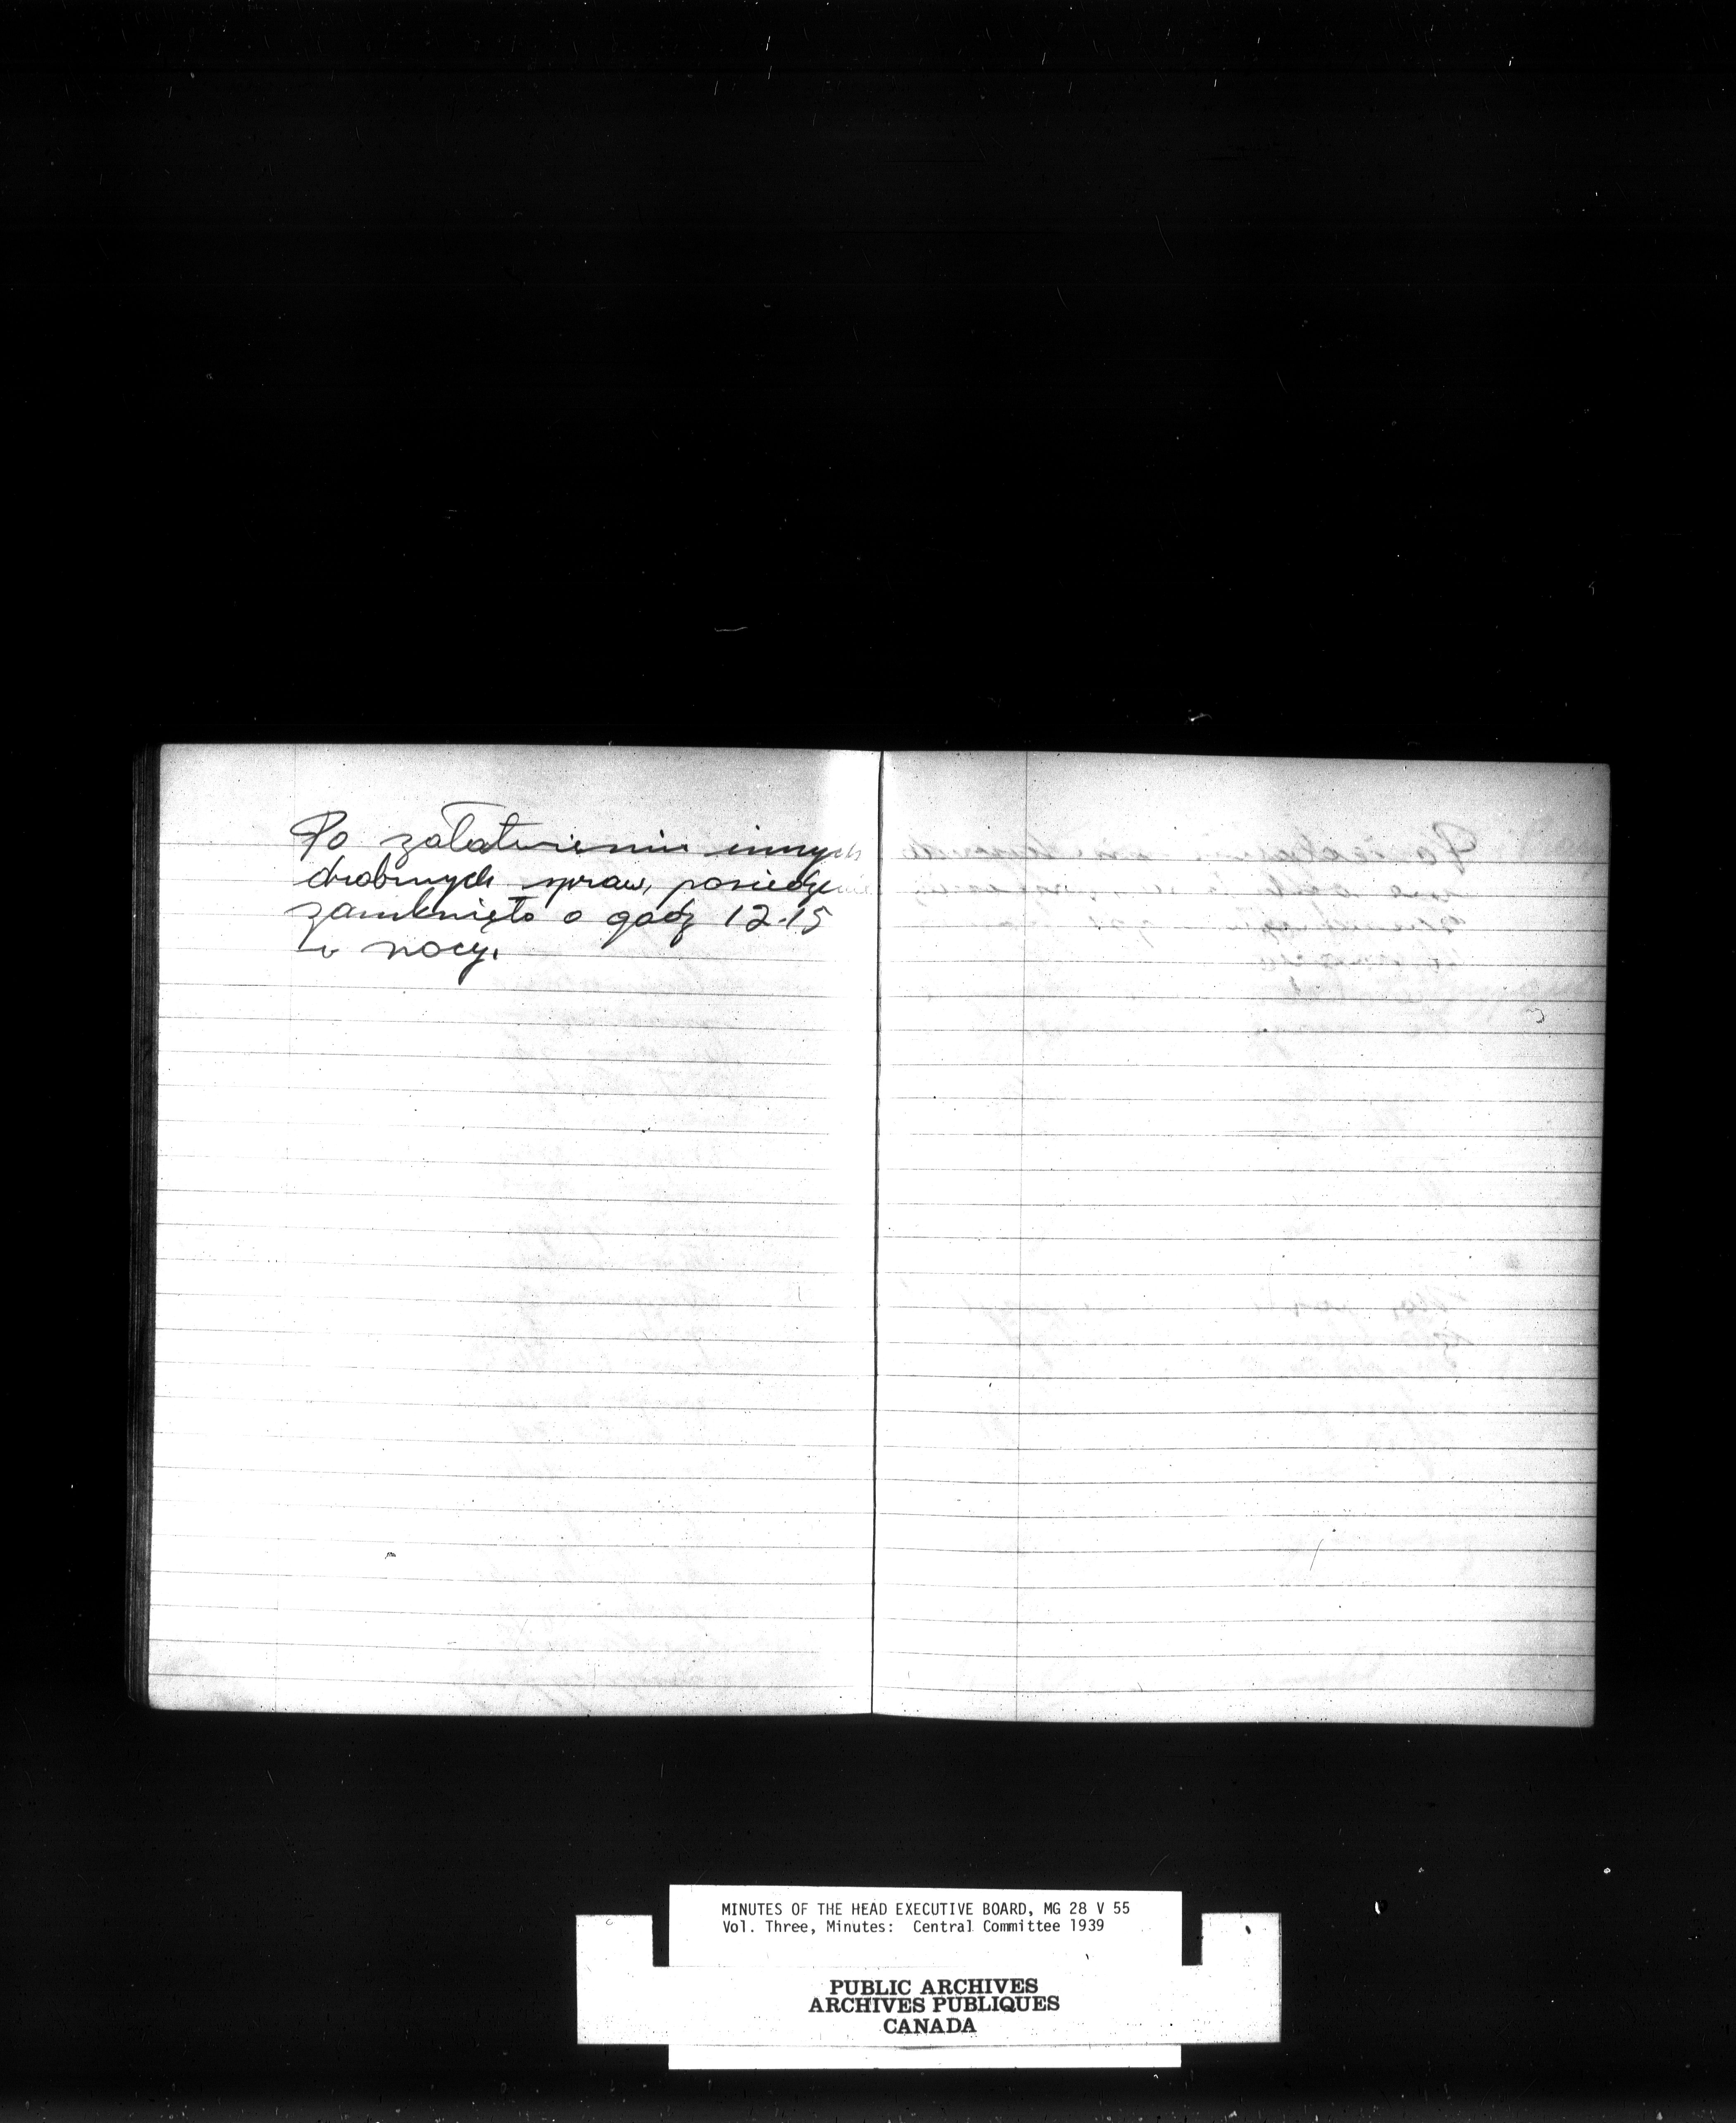 Po załatwieniu innych
drobnych spraw, posiedzenie
zamknięto o godz 12.15
w nocy.
MINUTES OF THE HEAD EXECUTIVE BOARD, MG 28 V 55
Vol. Three, Minutes: Central Committee 1939
PUBLIC ARCHIVES
ARCHIVES PUBLIQUES
CANADA